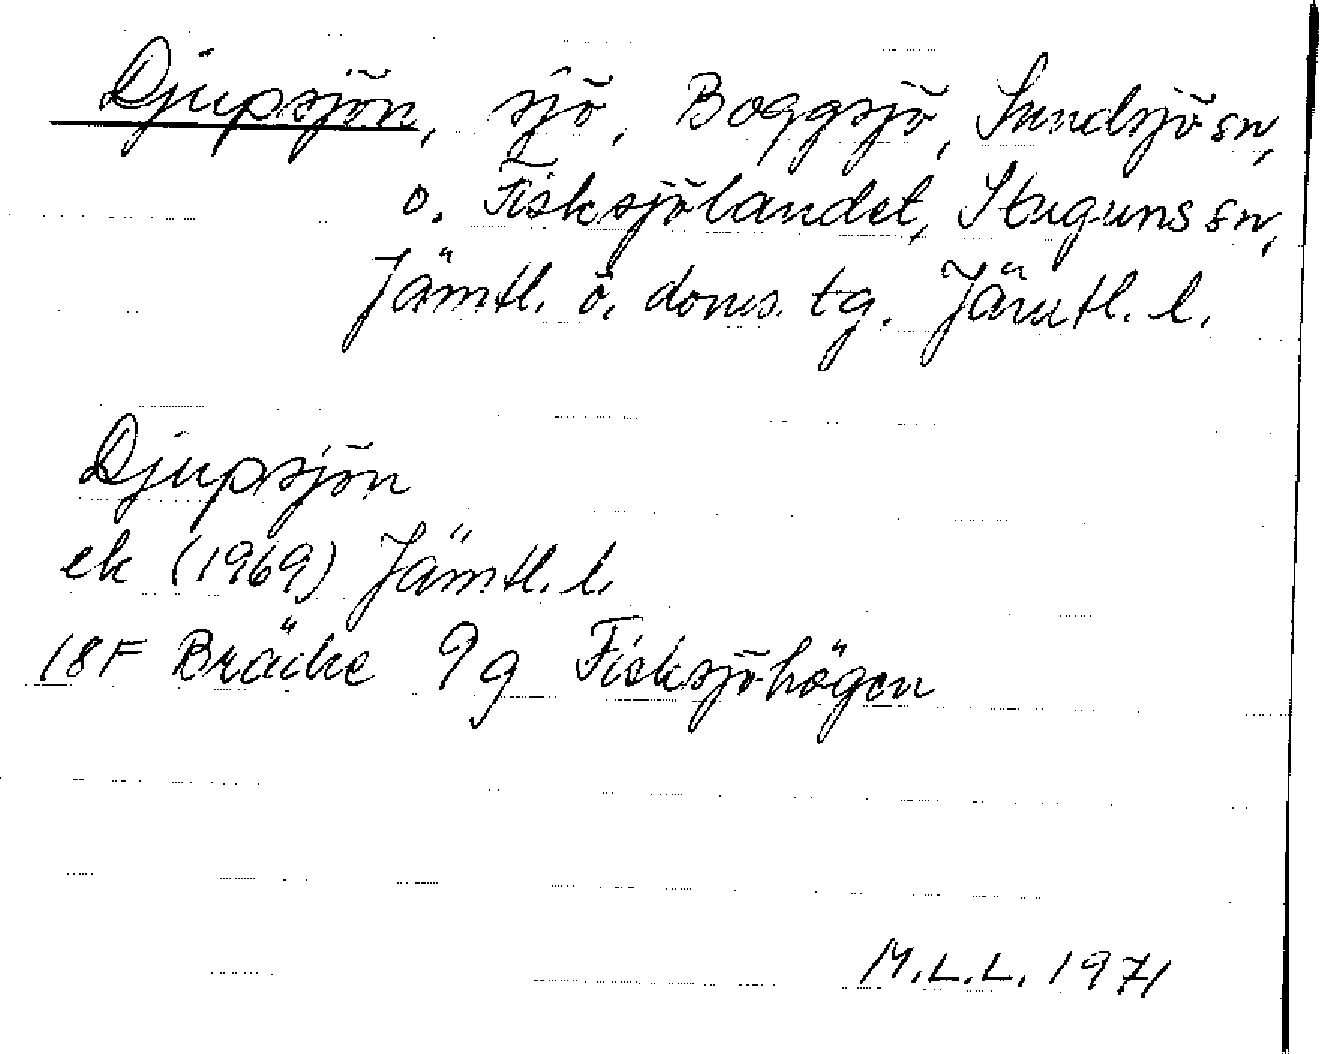 Djupsjön, sjö, Boggsjö, Sundsjö sn,
o. Fisksjölandet, Stuguns sn,
Jämtl. ö. doms. tg. Jämtl. l.
Djupsjön
ek (1969) Jämtl. l.
18F Bräcke 9g Fisksjöhögen
M.L.L. 1971